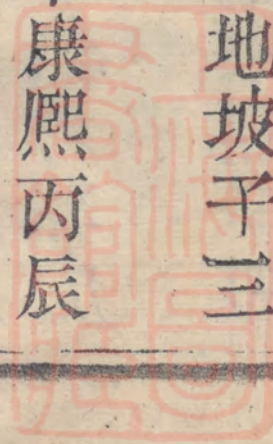 地坡子三
康熙丙辰